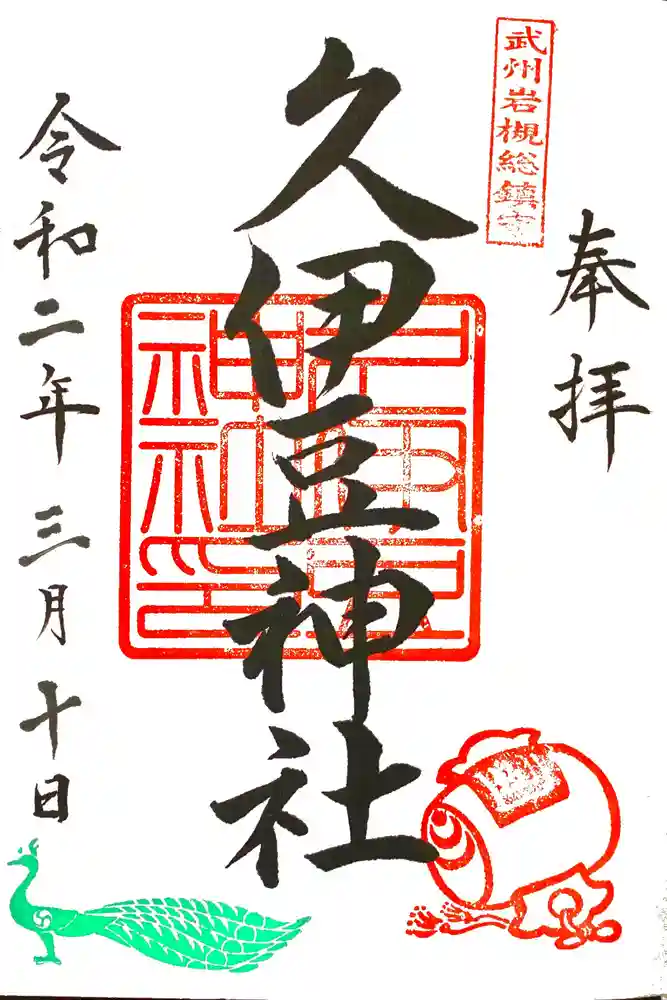 奉拝
武州岩槻総鎮守
久伊豆神社
令和二年三月十日